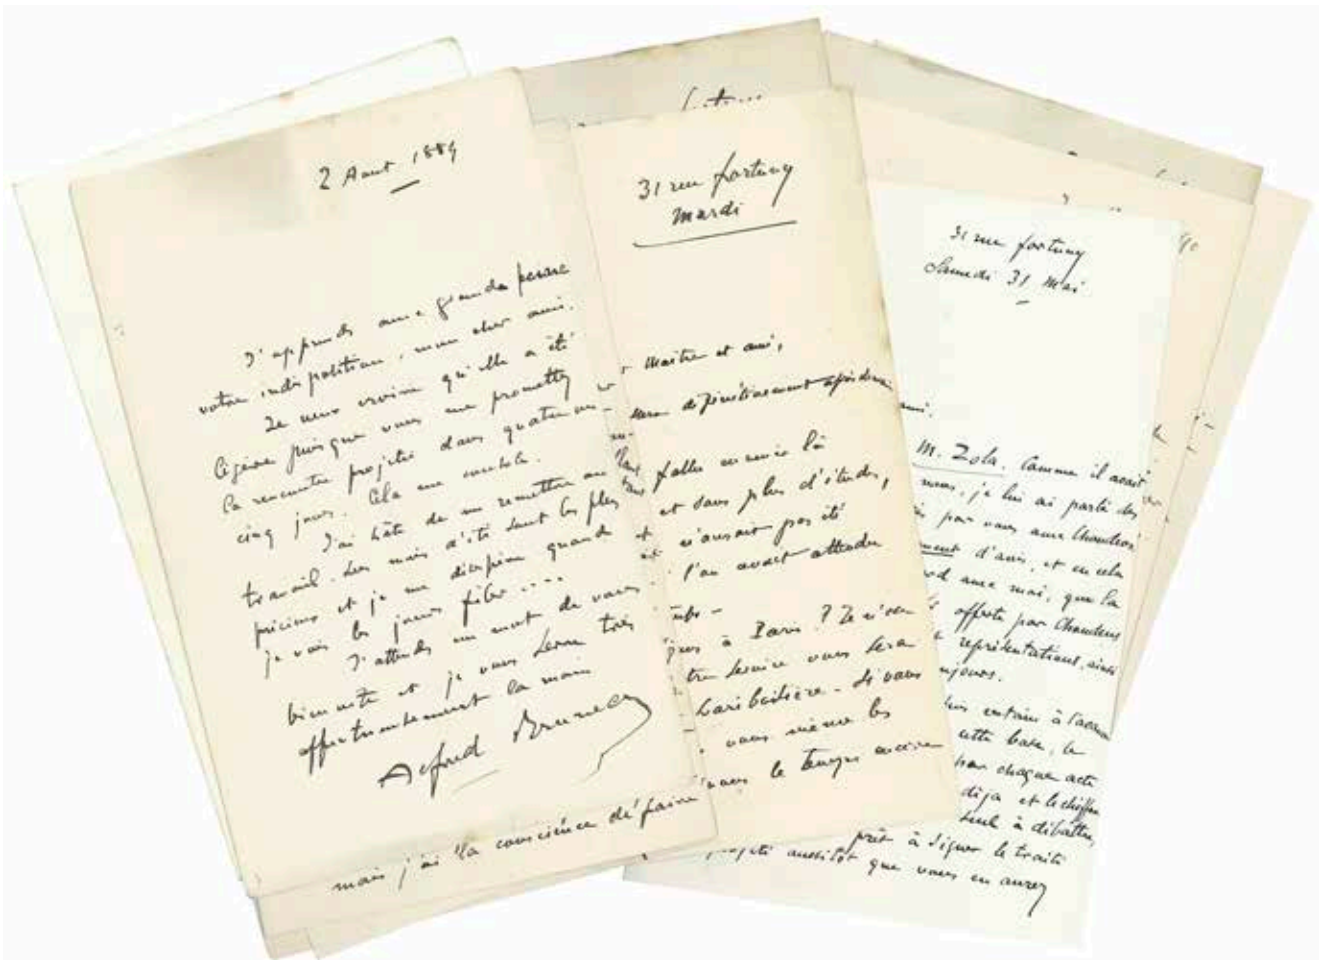 2 Aout 1889
J'apprends avec grande peine
votre indisposition, mon cher ami.
Je veux croire qu'elle a été
légère puisque vous me promettez
la rencontre projetée dans quatre ou
cinq jours. Cela me console.
J'ai hâte de me remettre au
travail. Les mois d'été sont les plus
précieux et je me désespère quand
je vois les jours filer....
J'attends un mot de vous
bien vite et je vous serre très
affectueusement la main
Alfred Bruneau
mais j'ai la conscience de faire
31 rue fortuny
Mardi
Maître et ami,
sera définitivement
fallu en venir là
et sans plus d'études,
n'aurait pas été
l'on avait attendu
à Paris ? Je n'en
service vous sera
Lariboisière - Si vous
vous même les
vous le temps encore
31 rue fortuny
Samedi 31 Mai
ami.
M. Zola. Comme il avait
nous, je lui ai parlé des
par vous avec Choudens
d'avis, et en cela
avec moi, que la
offerte par Choudens
représentations, ainsi
toujours.
cette base, le
par chaque acte
déja et le chiffre
seul à débattre,
prêt à signer le traité
projeté aussitôt que vous en aurez